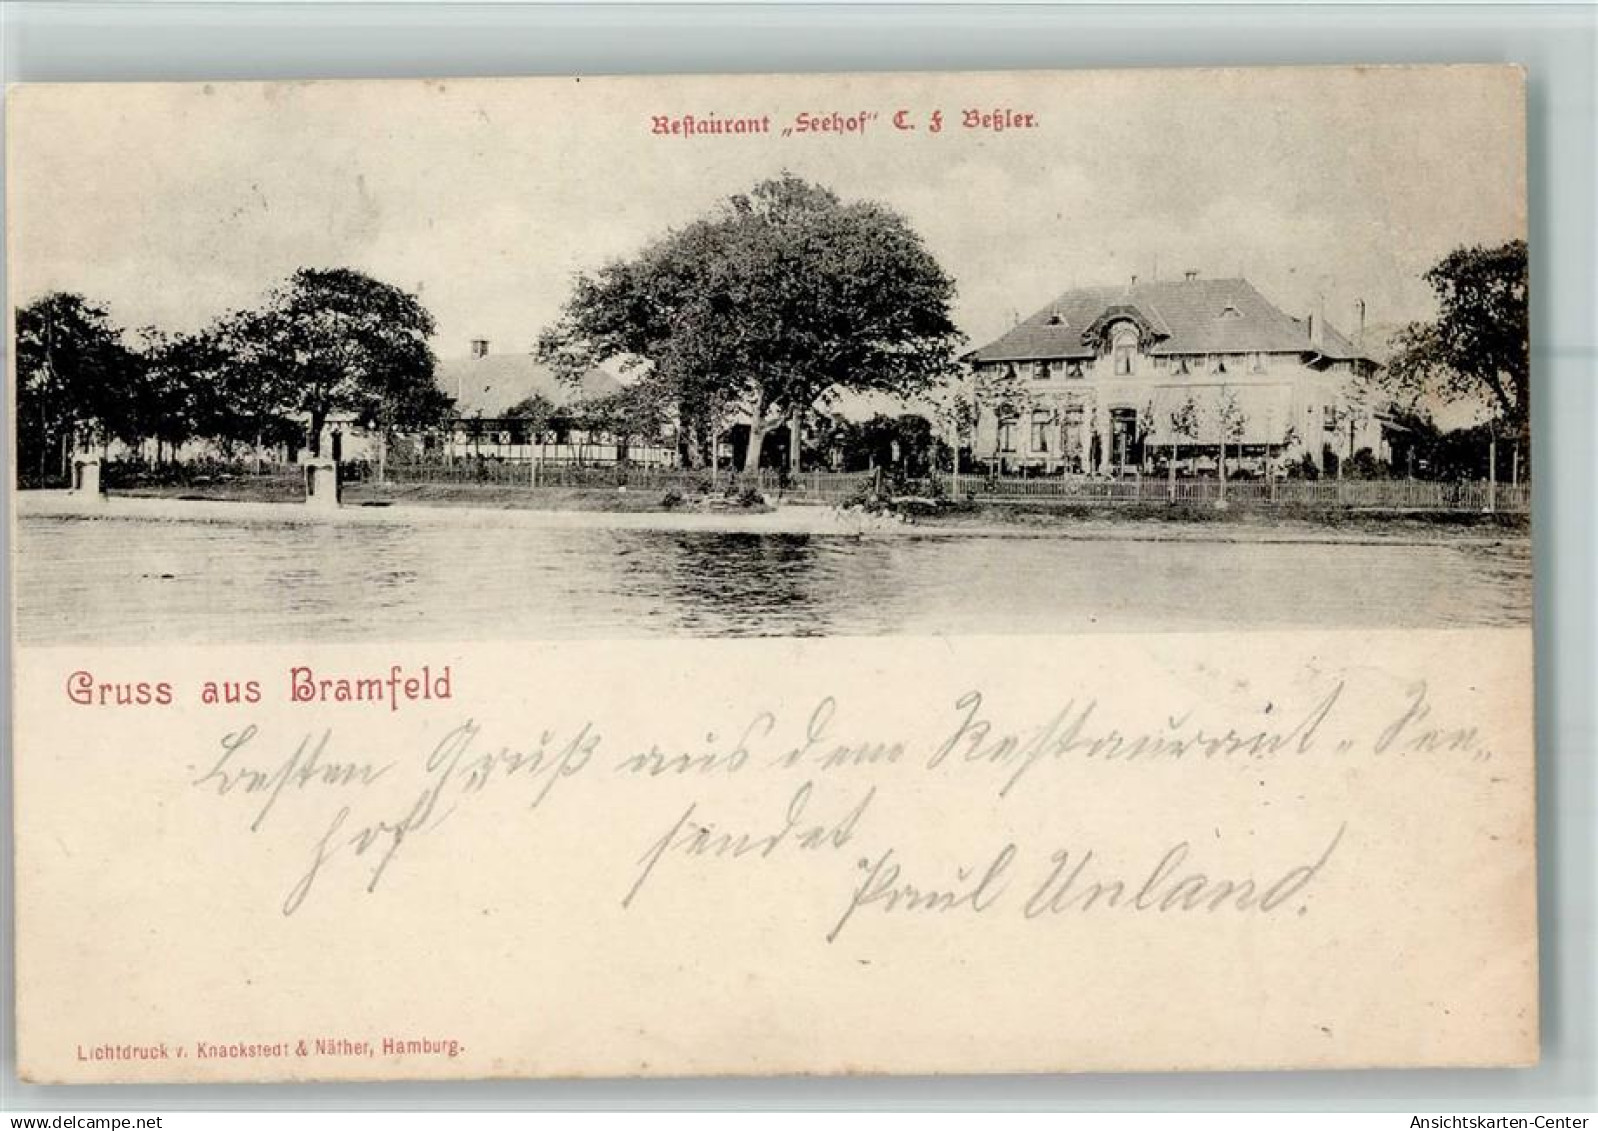 Restaurant „Seehof“ C. F Beßler.
Gruss aus Bramfeld
Besten Gruß aus dem Restaurant „See„
hof sendet
Paul Unland.
Lichtdruck v. Knackstedt & Näther, Hamburg.
www.delcampe.net
Ansichtskarten-Center